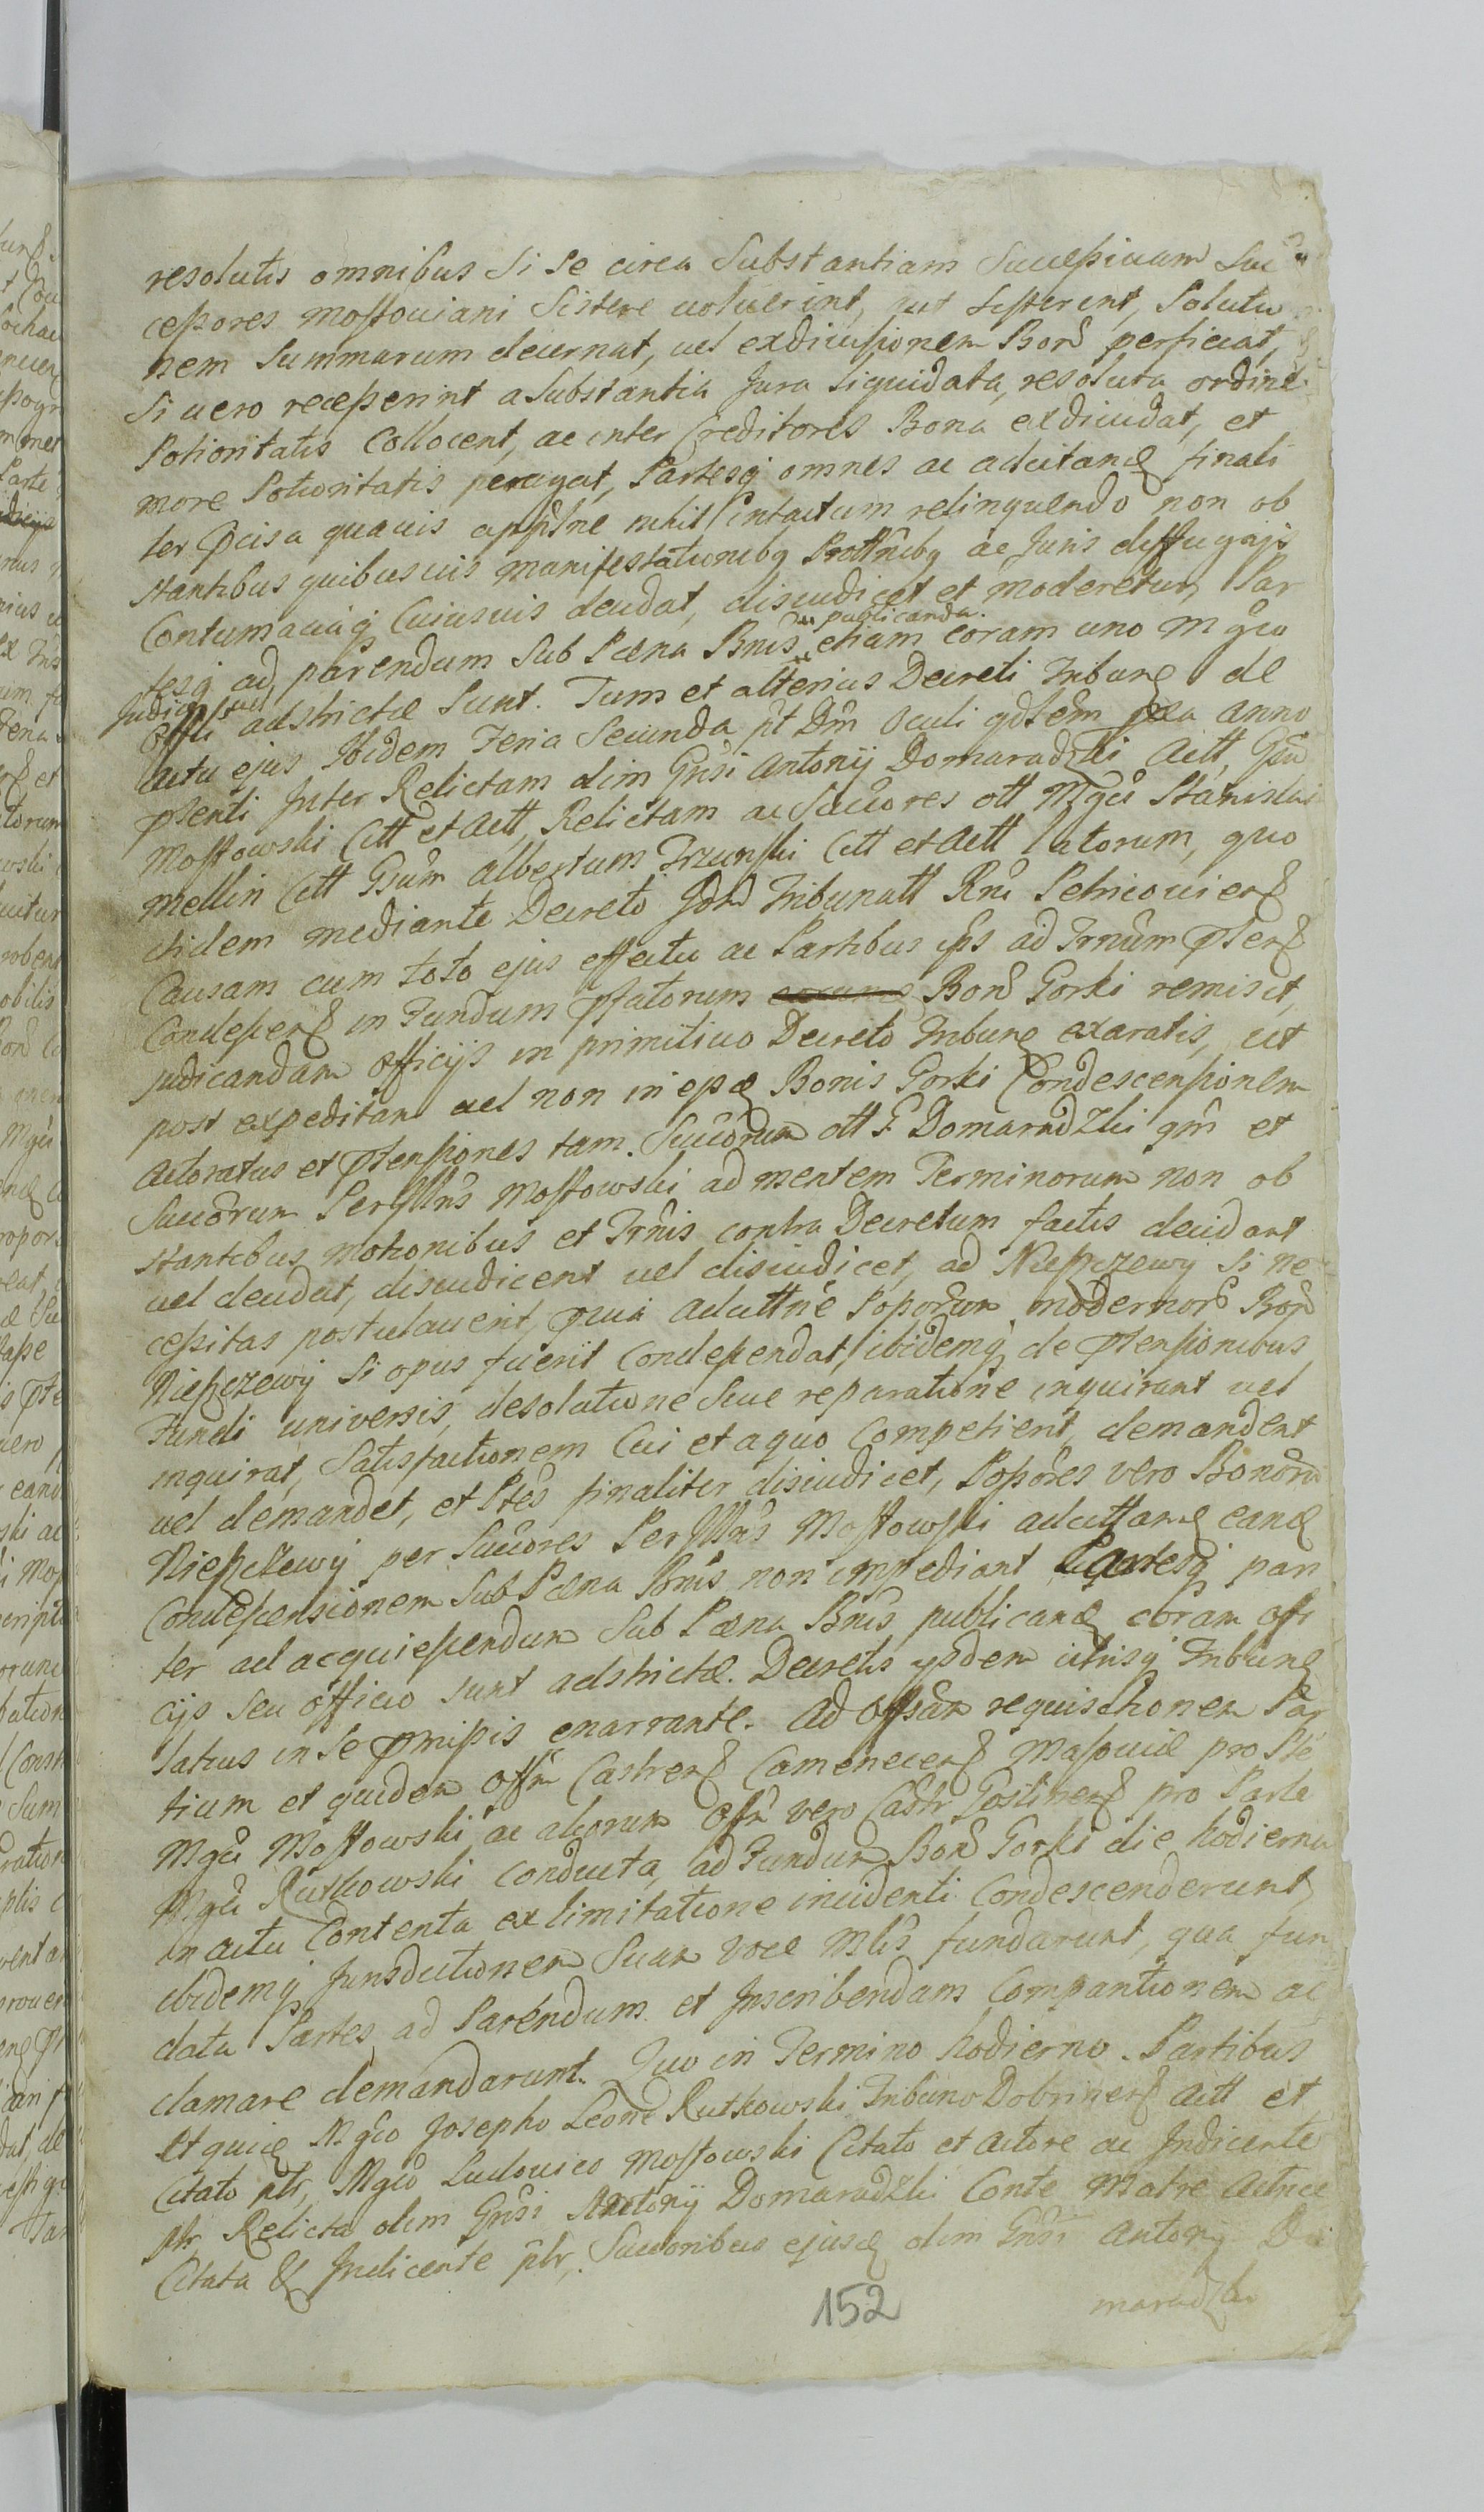 resolutis omnibus Si Se circa Substantiam Succeßivam Suc
ceßores Mostoviani Sistere voluerint, aut sisterent, Solutio
nem Summarum decernat, vel exdivisionem Bonõ perficiat,
Si vero receßerint a Substantia Jura liquidata, resoluta ordine
Potioritatis Collocent, ac inter Creditores Bona exdividat, et
more Potioritatis peragat, Partesq omnes ac adcitand finali
ter pcisa quavis appłne nihil intactum relinquendo non ob
stantibus quibusvis manifestationibg Prottnibg ac Juris diffugijs
Contumaciaq Cuiusvis decidat, disiudicet et moderetur, Par
publicanda
tesq ad parendum Sub Pæna Bnis etiam coram uno Mgco
Judice sive
Offi adstrictæ Sunt. Tum et alterius Decreti Tribun de
actu ejus Ibidem Feria Secunda pt Dm Oculi qdtem pxa anno
pnti Inter Relictam olim Gnsi Antonij Domaradzki Actt, Gsu
Mostowski Citt et Actt, Relictam ac Succores ott Mgci Stanislai
Mellin Citt Gsum Albertum Trzinski Citt et Actt latorum, quo
itidem mediante Decreto Jdm Tribunatt Rni Petricovien
Causam cum toto ejus effectu ac Partibus ips ad Trnum pten
Condescen in Fundum pfatorum Bonõ Gorki remisit,
judicandam officijs in primitivo Decreto Tribun exaratis, ut
post expeditam vel non in ejs Bonis Gorki Condescensionem
Actoratus et ptensiones tam Succorum ott G Domaradzki qm et
Succorum Perillris Mostowski ad mentem Terminorum non ob
stantibus motionibus et Trnis contra Decretum factis decidant
vel decidat, disiudicent vel disiudicet, ad Niepczewy Si ne
ceßitas postulaverit, pvia adcittne Poporum modernorõ Bonõ
Niepczewy Si opus fuerit Condescendat, ibidemq de ptensionibus
Fundi universis, desolatione Sive reparatione inquirant vel
inquirat, Satisfactionem Cui et a quo Competierit, demandent
vel demandet, et Ptes finaliter disiudicet, Popores vero Bonorũ
Niepczewy per Succores Perillris Mostowski adcittand eand
Condescensionem Sub Pæna Bnis non impediant Partesq pari
ter ad acquiescendum Sub Pæna Bnis publicand coram offi
cijs seu officio sunt adstrictæ. Decretis ijsdem utrisq Tribun
latius in Se pmißis enarrante. Ad Offsam requisitionem Par
tium et quidem Offm Castren Camenecen Masoviæ pro Pte
Mgci Mostowski ac aliorum Offm vero Castr Gostinen pro Parte
Mgci Rutkowski conducta, ad Fundum Bonõ Gorki die hodierna
in actu Contenta ex limitatione incidenti Condescenderunt,
ibidemq Jurisdictionem Suam voce Mlis fundarunt, qua fun
data Partes ad Parendum et Inscribendam Comparitionem ac
clamare demandarunt. Quo in Termino hodierno Partibus
Et quid Mgco Josepho Leone Rutkowski Tribuno Dobrinen Actt et
Citato ptr, Mgco Ludovico Mostowski Citato et Actore ac Indicente
ptr Relicta olim Gnsi Antonij Domaradzki Conte Matre Actrice
Citata & Indicente ptr, Succoribus ejusd olim Gnsi Antonij Do
maradzki
152